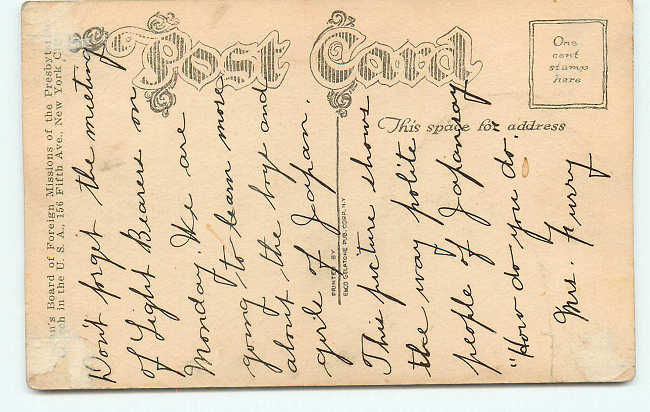 Post Card
One
cent
stamp
here
This space for address
Board of Foreign Missions of the
in the U. S. A., 156 Fifth Ave., New York
PRINTED BY
EXCO GELATONE PUB. CORP. N.Y.
Don't forget the meeting
of Light Bearers on
Monday. We are
going to learn more
about the boys and
girls of Japan.
This picture shows
the way polite
people of Japan say
"How do you do.
Mrs. Furry